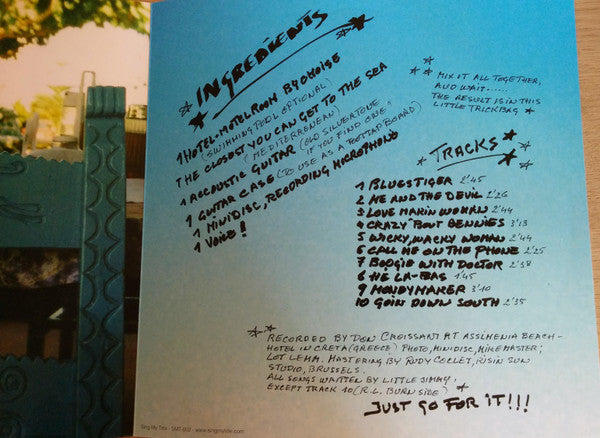 INGREDIENTS
1 HOTEL-MOTELROOM BY CHOISE
(SWIMMING POOL OPTIONAL)
THE CLOSEST YOU CAN GET TO THE SEA
(MEDITERRANEAN)
1 ACCOUSTIC GUITAR (OLD SILVERTONE
IF YOU FIND ONE)
1 GUITAR CASE (TO USE AS A FOOTTAP BOARD)
1 MINIDISC, RECORDING MICROPHONE
1 VOICE!
MIX IT ALL TOGETHER,
AND WAIT......
THE RESULT IS IN THIS
LITTLE TRICKBAG
TRACKS
1 BLUESTIGER 2'45
2 ME AND THE DEVIL 2'26
3 LOVE MAKIN WOMAN 2'44
4 CRAZY 'BOUT BENNIES 3'13
5 WICKY, WACKY WOMAN 2'44
6 CALL ME ON THE PHONE 2'25
7 BOOGIE WITH DOCTOR 2'38
8 HE LA-BAS 1'45
9 MONEYMAKER 3'10
10 GOIN DOWN SOUTH 2'35
RECORDED BY DON CROISSANT AT ASSLMENIA BEACH-
HOTEL IN CRETA (GREECE) PHOTO, MINIDISC, MIKEMASTER;
LOT LEMM. MASTERING BY RUDY COCLET, RISIN SUN
STUDIO, BRUSSELS.
ALL SONGS WRITTEN BY LITTLE JIMMY.
EXCEPT TRACK 10 (R.L. BURNSIDE)
JUST GO FOR IT!!!
Sing My Title - SMT-002 - www.singmytitle.com